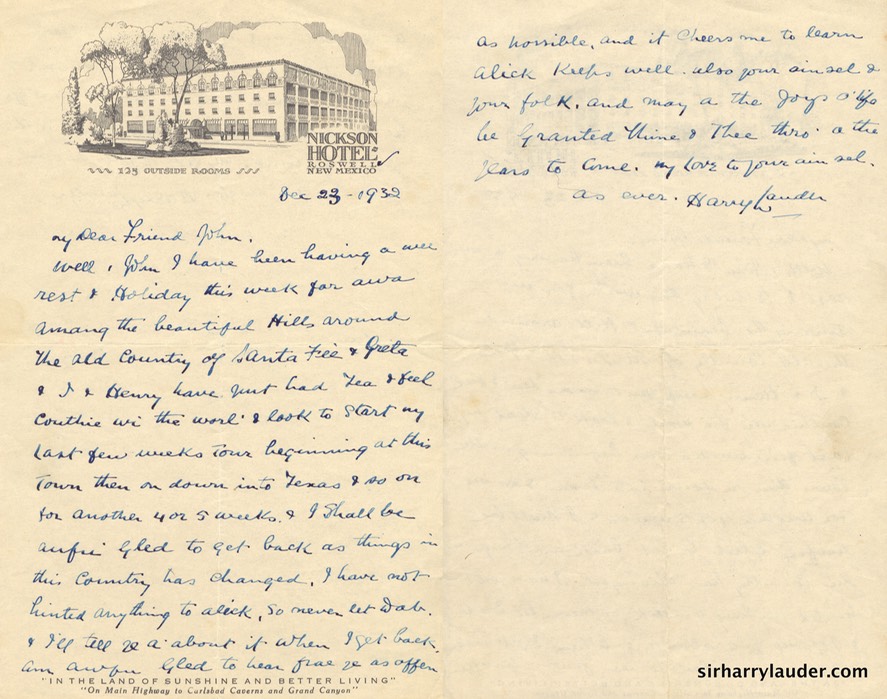 NICKSON
HOTEL
ROSWELL
NEW MEXICO
125 OUTSIDE ROOMS
Dec 23-1932
my Dear Friend John.
Well, John I have been having a wee
rest & Holiday this week far awa
amang the beautiful Hills around
the old Country of Santa Fee & Greta
& I & Henry have just had Tea & feel
Couthie wi the worl' & look to start my
last few weeks Tour beginning at this
Town then on down into Texas & so on
for another 4 or 5 weeks. & I shall be
awfu Gled to get back as things in
this Country has changed, I have not
hinted anything to alick, so never let Dab.
& I'll tell ye a' about it when I get back,
am awfu Gled to hear frae ye as often
"IN THE LAND OF SUNSHINE AND BETTER LIVING"
"On Main Highway to Carlsbad Caverns and Grand Canyon"
as possible, and it Cheers me to learn
alick Keeps well. also your ain sel &
your folk. and may a the Joys o' life
be Granted Mine & Thee thro' a the
years to come. my Love to your ain sel.
as ever. Harry Lauder
sirharrylauder.com